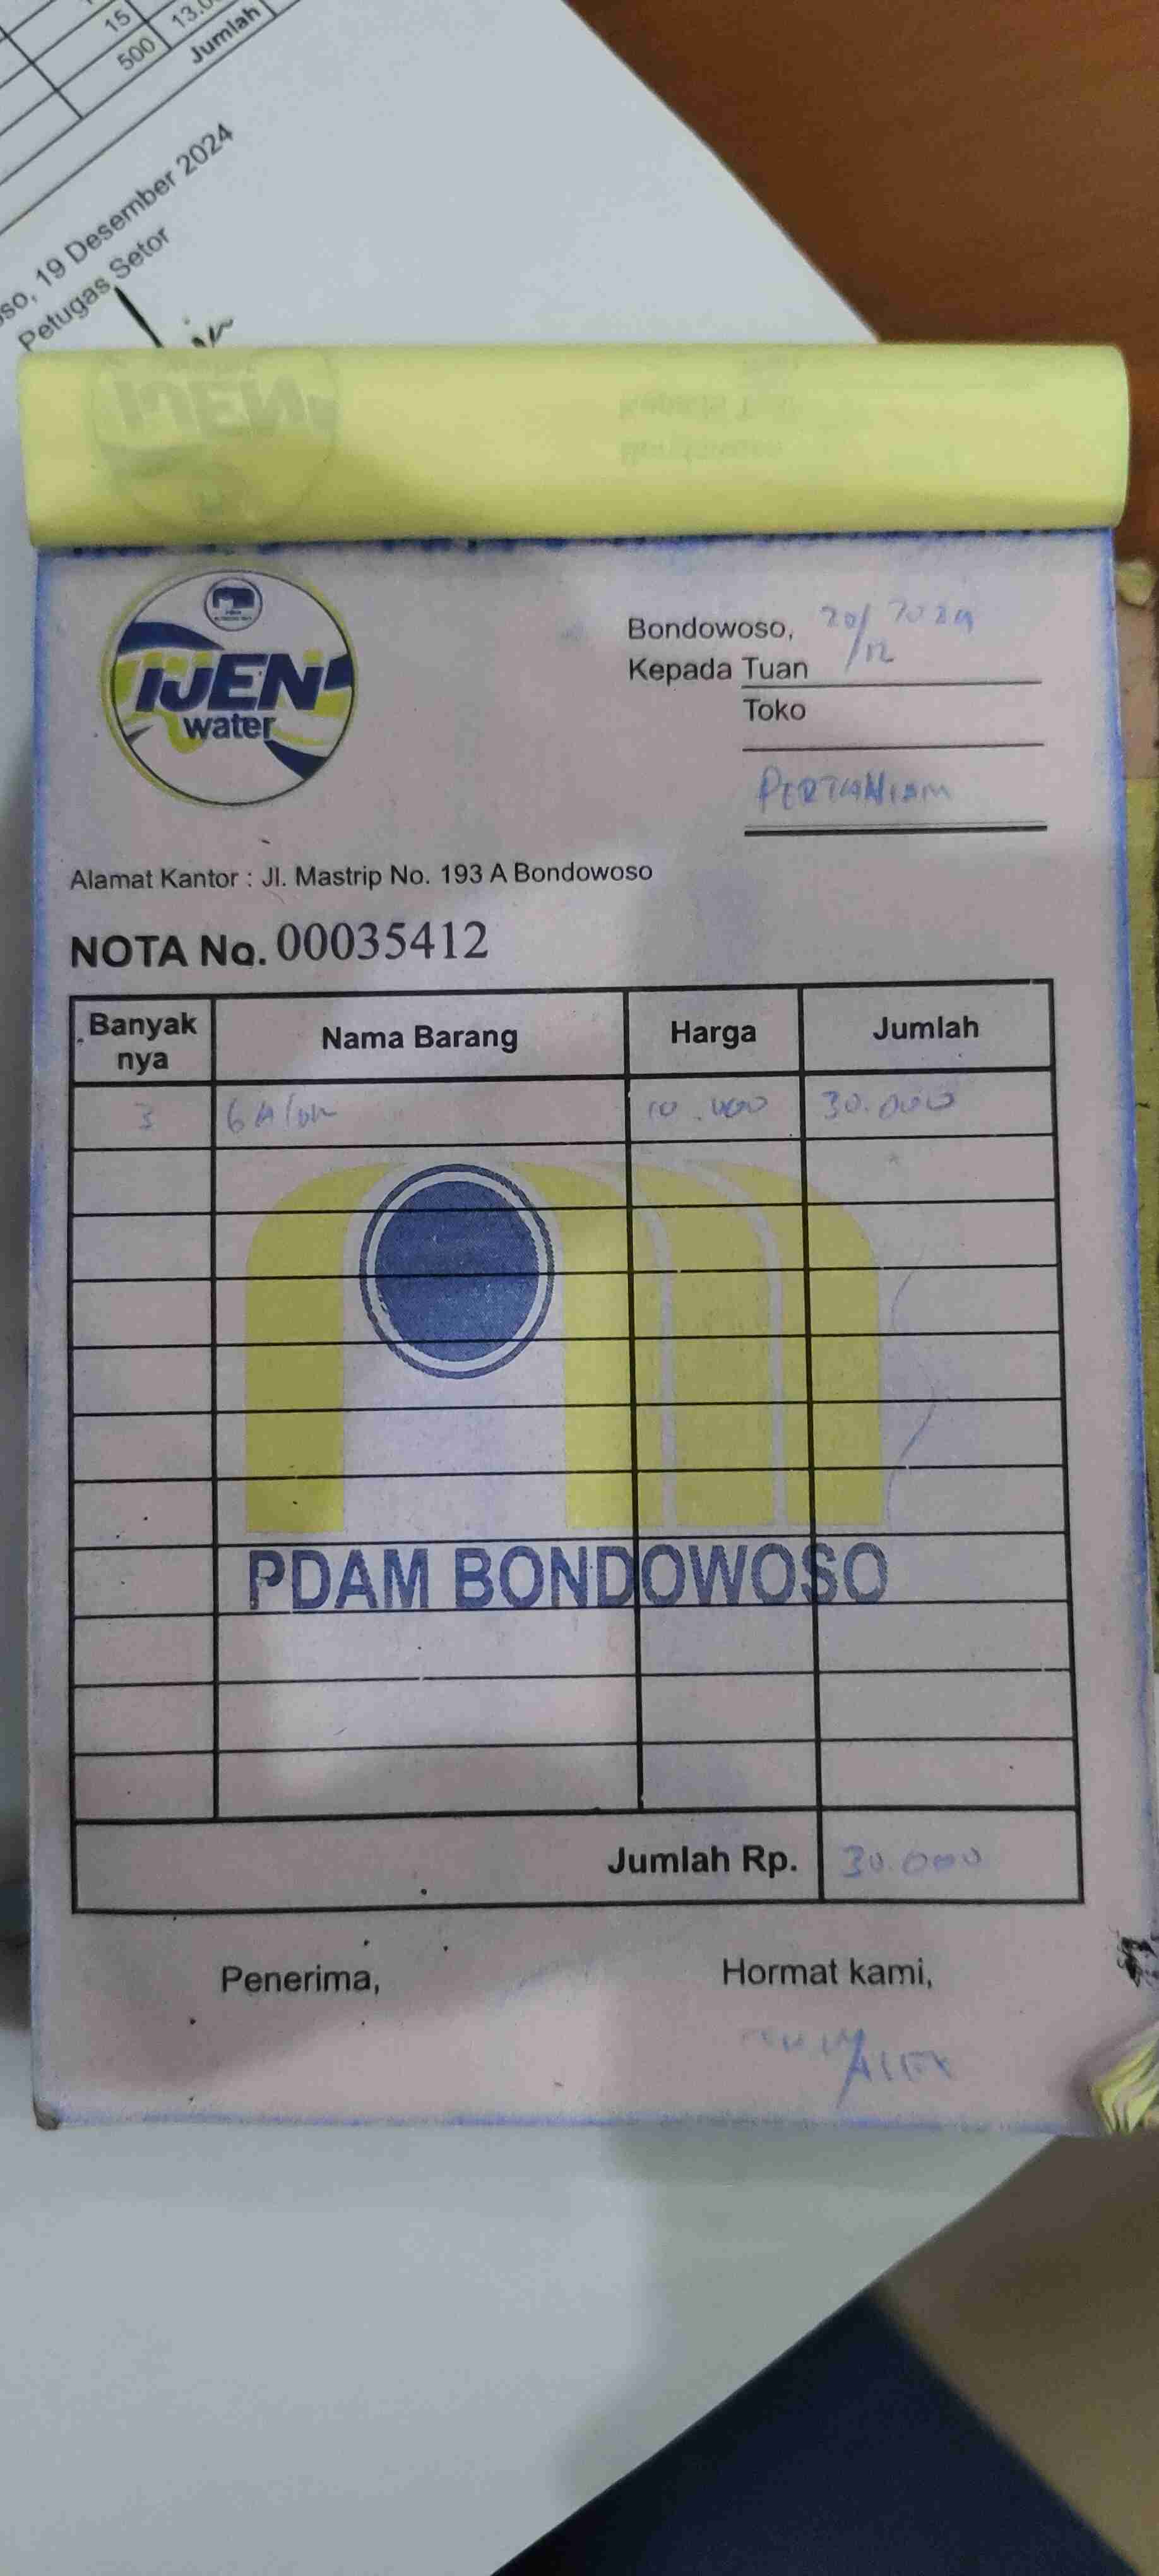 15
500
13.0
Jumlah
so, 19 Desember 2024
Petugas Setor
IJEN
water
Bondowoso, 20/12 2024
Kepada Tuan
Toko
PERTANIAN
Alamat Kantor : Jl. Mastrip No. 193 A Bondowoso
NOTA No. 00035412
Banyak nya Nama Barang Harga Jumlah
3 GAlon 10.000 30.000
PDAM BONDOWOSO
Jumlah Rp. 30.000
Penerima, Hormat kami,
ALEX